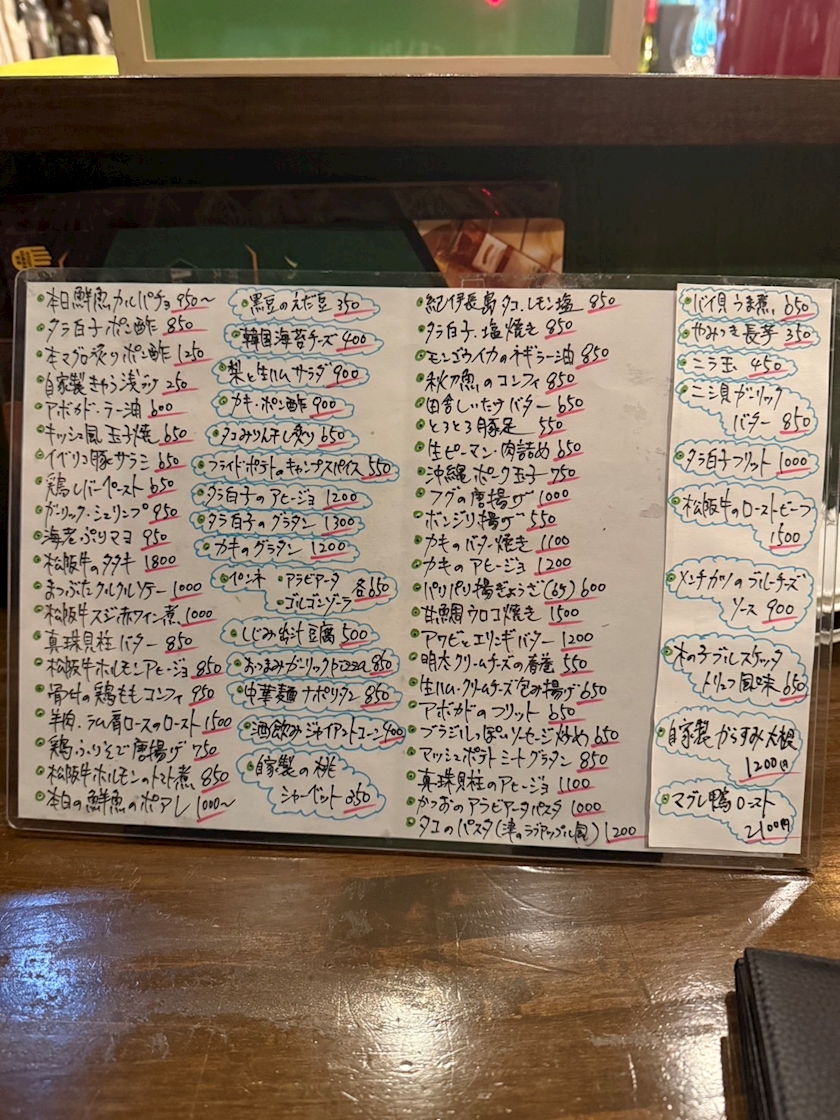 本日鮮魚カルパチョ 950〜
タラ白子ポン酢 850
本マグロ炙りポン酢 1250
自家製きゅう浅漬ケ 250
アボカド・ラー油 600
キッシュ風玉子焼 650
イベリコ豚サラミ 650
鶏レバーペースト 650
ガーリック・シュリンプ 950
海老ぷりマヨ 950
松阪牛のタタキ 1800
まつぶたクルクルソテー 1000
松阪牛スジ赤ワイン煮 1000
真珠貝柱バター 850
松阪牛ホルモンアヒージョ 850
骨付の鶏ももコンフィ 950
羊肉、ラム肩ロースのロースト 1500
鶏ふりそで唐揚げ 750
松阪牛ホルモンのトマト煮 850
本日の鮮魚のポアレ 1000〜
黒豆のえだ豆 350
韓国海苔チーズ 400
梨と生ハムサラダ 900
カキ・ポン酢 900
タコみりん干し炙り 650
フライドポテトのキャンプスパイス 550
タラ白子のアヒージョ 1200
タラ白子のグラタン 1300
カキのグラタン 1200
ペンネ ・アラビアータ 各650
・ゴルゴンゾーラ
しじみ出汁豆腐 500
おつまみガーリックトースト 850
中華麺ナポリタン 850
酒飲みジャイアントコーン 400
自家製の桃
シャーベット 350
紀伊長島タコ、レモン塩 850
タラ白子、塩焼き 850
モンゴウイカのネギラー油 850
秋刀魚のコンフィ 850
田舎しいたけバター 650
とろとろ豚足 550
生ピーマン・肉詰め 650
沖縄ポーク玉子 750
フグの唐揚げ 1000
ボンジリ揚げ 550
カキのバター焼き 1100
カキのアヒージョ 1200
パリパリ揚ぎょうざ(6ヶ) 600
甘鯛ウロコ焼き 1500
アワビとエリンギバター 1200
明太クリームチーズの春巻 550
生ハム・クリームチーズ包み揚げ 650
アボカドのフリット 650
ブラジルっぽいソーセージ炒め 650
マッシュポテトミートグラタン 850
真珠貝柱のアヒージョ 1100
かつおのアラビアータパスタ 1000
タコのパスタ(津のラブアップル風) 1200
バイ貝うま煮 650
やみつき長芋 350
ニラ玉 450
ニシ貝ガーリック
バター 850
タラ白子フリット 1000
松阪牛のローストビーフ
1500
メンチカツのブルーチーズ
ソース 900
木の子ブルスケッタ
トリュフ風味 650
自家製からすみ大根
1200円
マグレ鴨ロースト
2100円